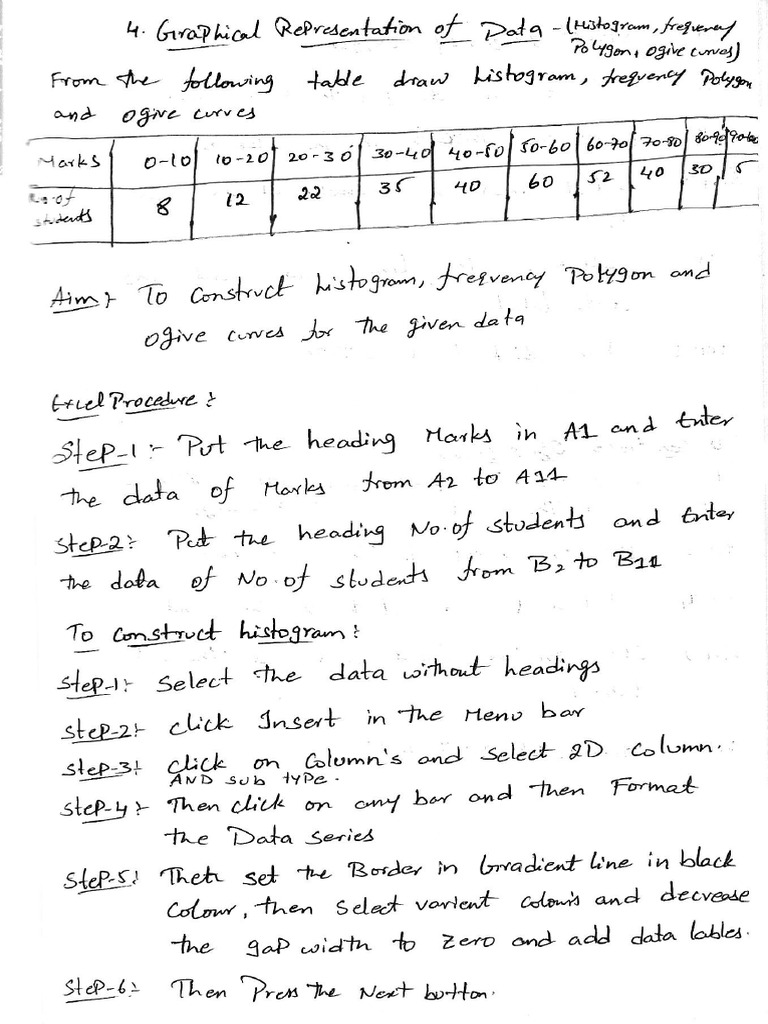 4. Graphical Representation of Data - (Histogram, frequency
Polygon, ogive curves)
From the following table draw histogram, frequency Polygon
and ogive curves
Marks 0-10 10-20 20-30 30-40 40-50 50-60 60-70 70-80 80-90 90-100
No. of students 8 12 22 35 40 60 52 40 30 5
Aim :- To Construct histogram, frequency Polygon and
ogive curves for the given data
Excel Procedure :-
Step-1 :- Put the heading Marks in A1 and Enter
the data of Marks from A2 to A11
Step-2 :- Put the heading No. of students and Enter
the data of No. of students from B2 to B11
To construct histogram :-
Step-1 :- Select the data without headings
Step-2 :- click Insert in the Menu bar
Step-3 :- click on Column's and select 2D column.
AND SUB TYPE.
Step-4 :- Then click on any bar and then Format
the Data series
Step-5 :- Then set the Border in Grradient line in black
Colour, then select varient colours and decrease
the gap width to zero and add data lables.
Step-6 :- Then Press the Next button.